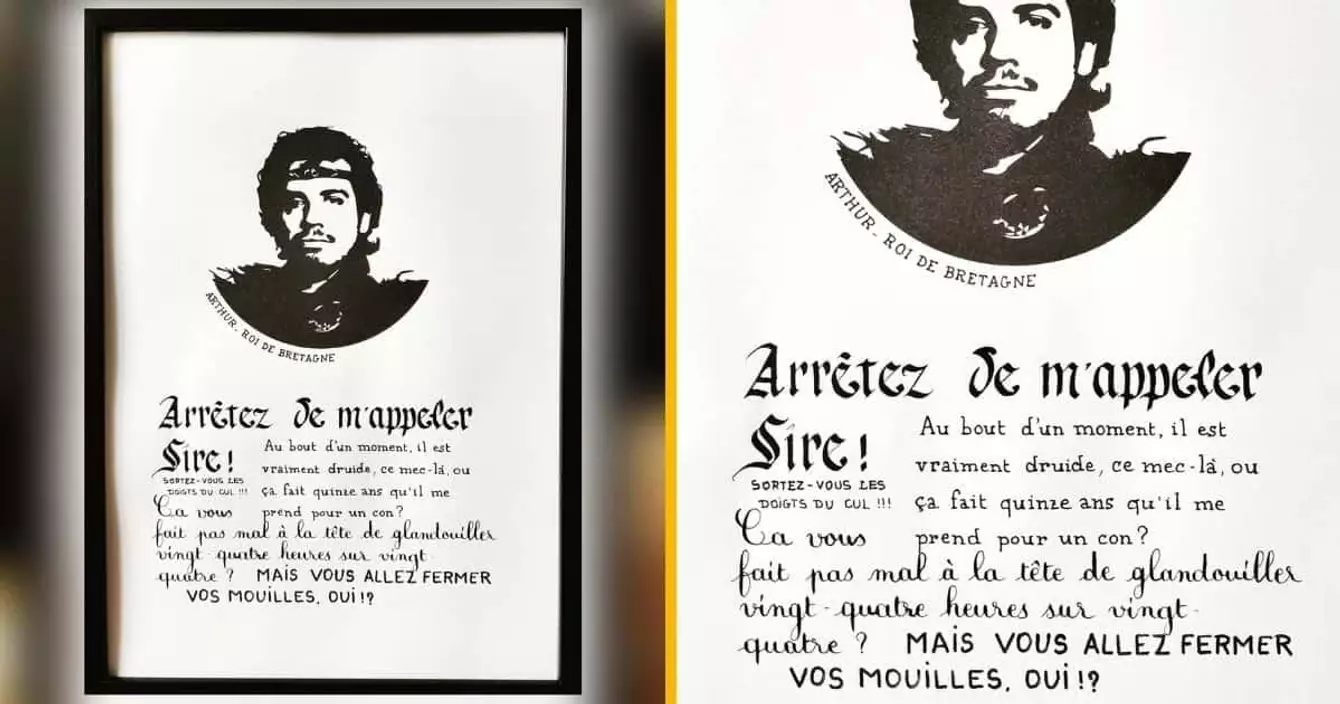 ARTHUR. ROI DE BRETAGNE
Arrêtez de m'appeler
Sire!
SORTEZ-VOUS LES
DOIGTS DU CUL !!!
Au bout d'un moment, il est
vraiment druide, ce mec-là, ou
ça fait quinze ans qu'il me
prend pour un con?
Ça vous
fait pas mal à la tête de glandouiller
vingt-quatre heures sur vingt-
quatre ? MAIS VOUS ALLEZ FERMER
VOS MOUILLES, OUI!?
ARTHUR. ROI DE BRETAGNE
Arrêtez de m'appeler
Sire!
SORTEZ-VOUS LES
DOIGTS DU CUL !!!
Au bout d'un moment, il est
vraiment druide, ce mec-là, ou
ça fait quinze ans qu'il me
prend pour un con?
Ça vous
fait pas mal à la tête de glandouiller
vingt-quatre heures sur vingt-
quatre ? MAIS VOUS ALLEZ FERMER
VOS MOUILLES, OUI!?